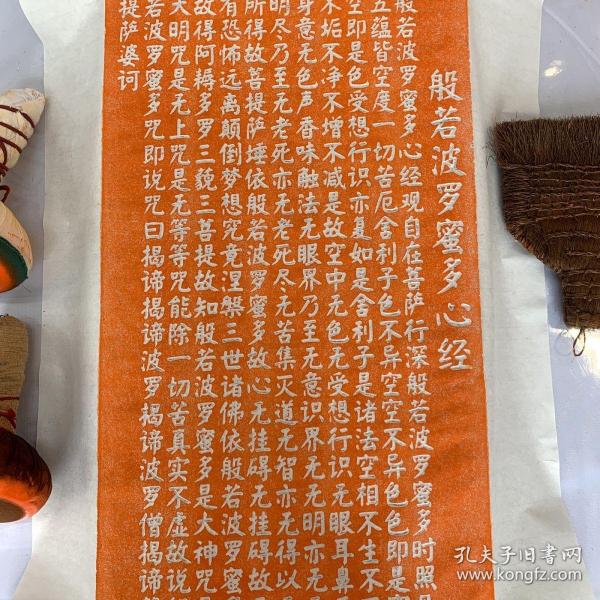 般若波罗蜜多心经
般若波罗蜜多心经观自在菩萨行深般若波罗蜜多时照
五蕴皆空度一切苦厄舍利子色不异空空不异色色即是
空即是色受想行识亦复如是舍利子是诸法空相不生不
不垢不净不增不减是故空中无色无受想行识无眼耳鼻
身意无色声香味触法无眼界乃至无意识界无无明亦无
明尽乃至无老死亦无老死尽无苦集灭道无智亦无得以
所得故菩提萨埵依般若波罗蜜多故心无挂碍无挂碍故
有恐怖远离颠倒梦想究竟涅槃三世诸佛依般若波罗蜜
故得阿耨多罗三藐三菩提故知般若波罗蜜多是大神咒
大明咒是无上咒是无等等咒能除一切苦真实不虚故说
若波罗蜜多咒即说咒曰揭谛揭谛波罗揭谛波罗僧揭谛
提萨婆诃
孔夫子旧书网
www.kongfz.com